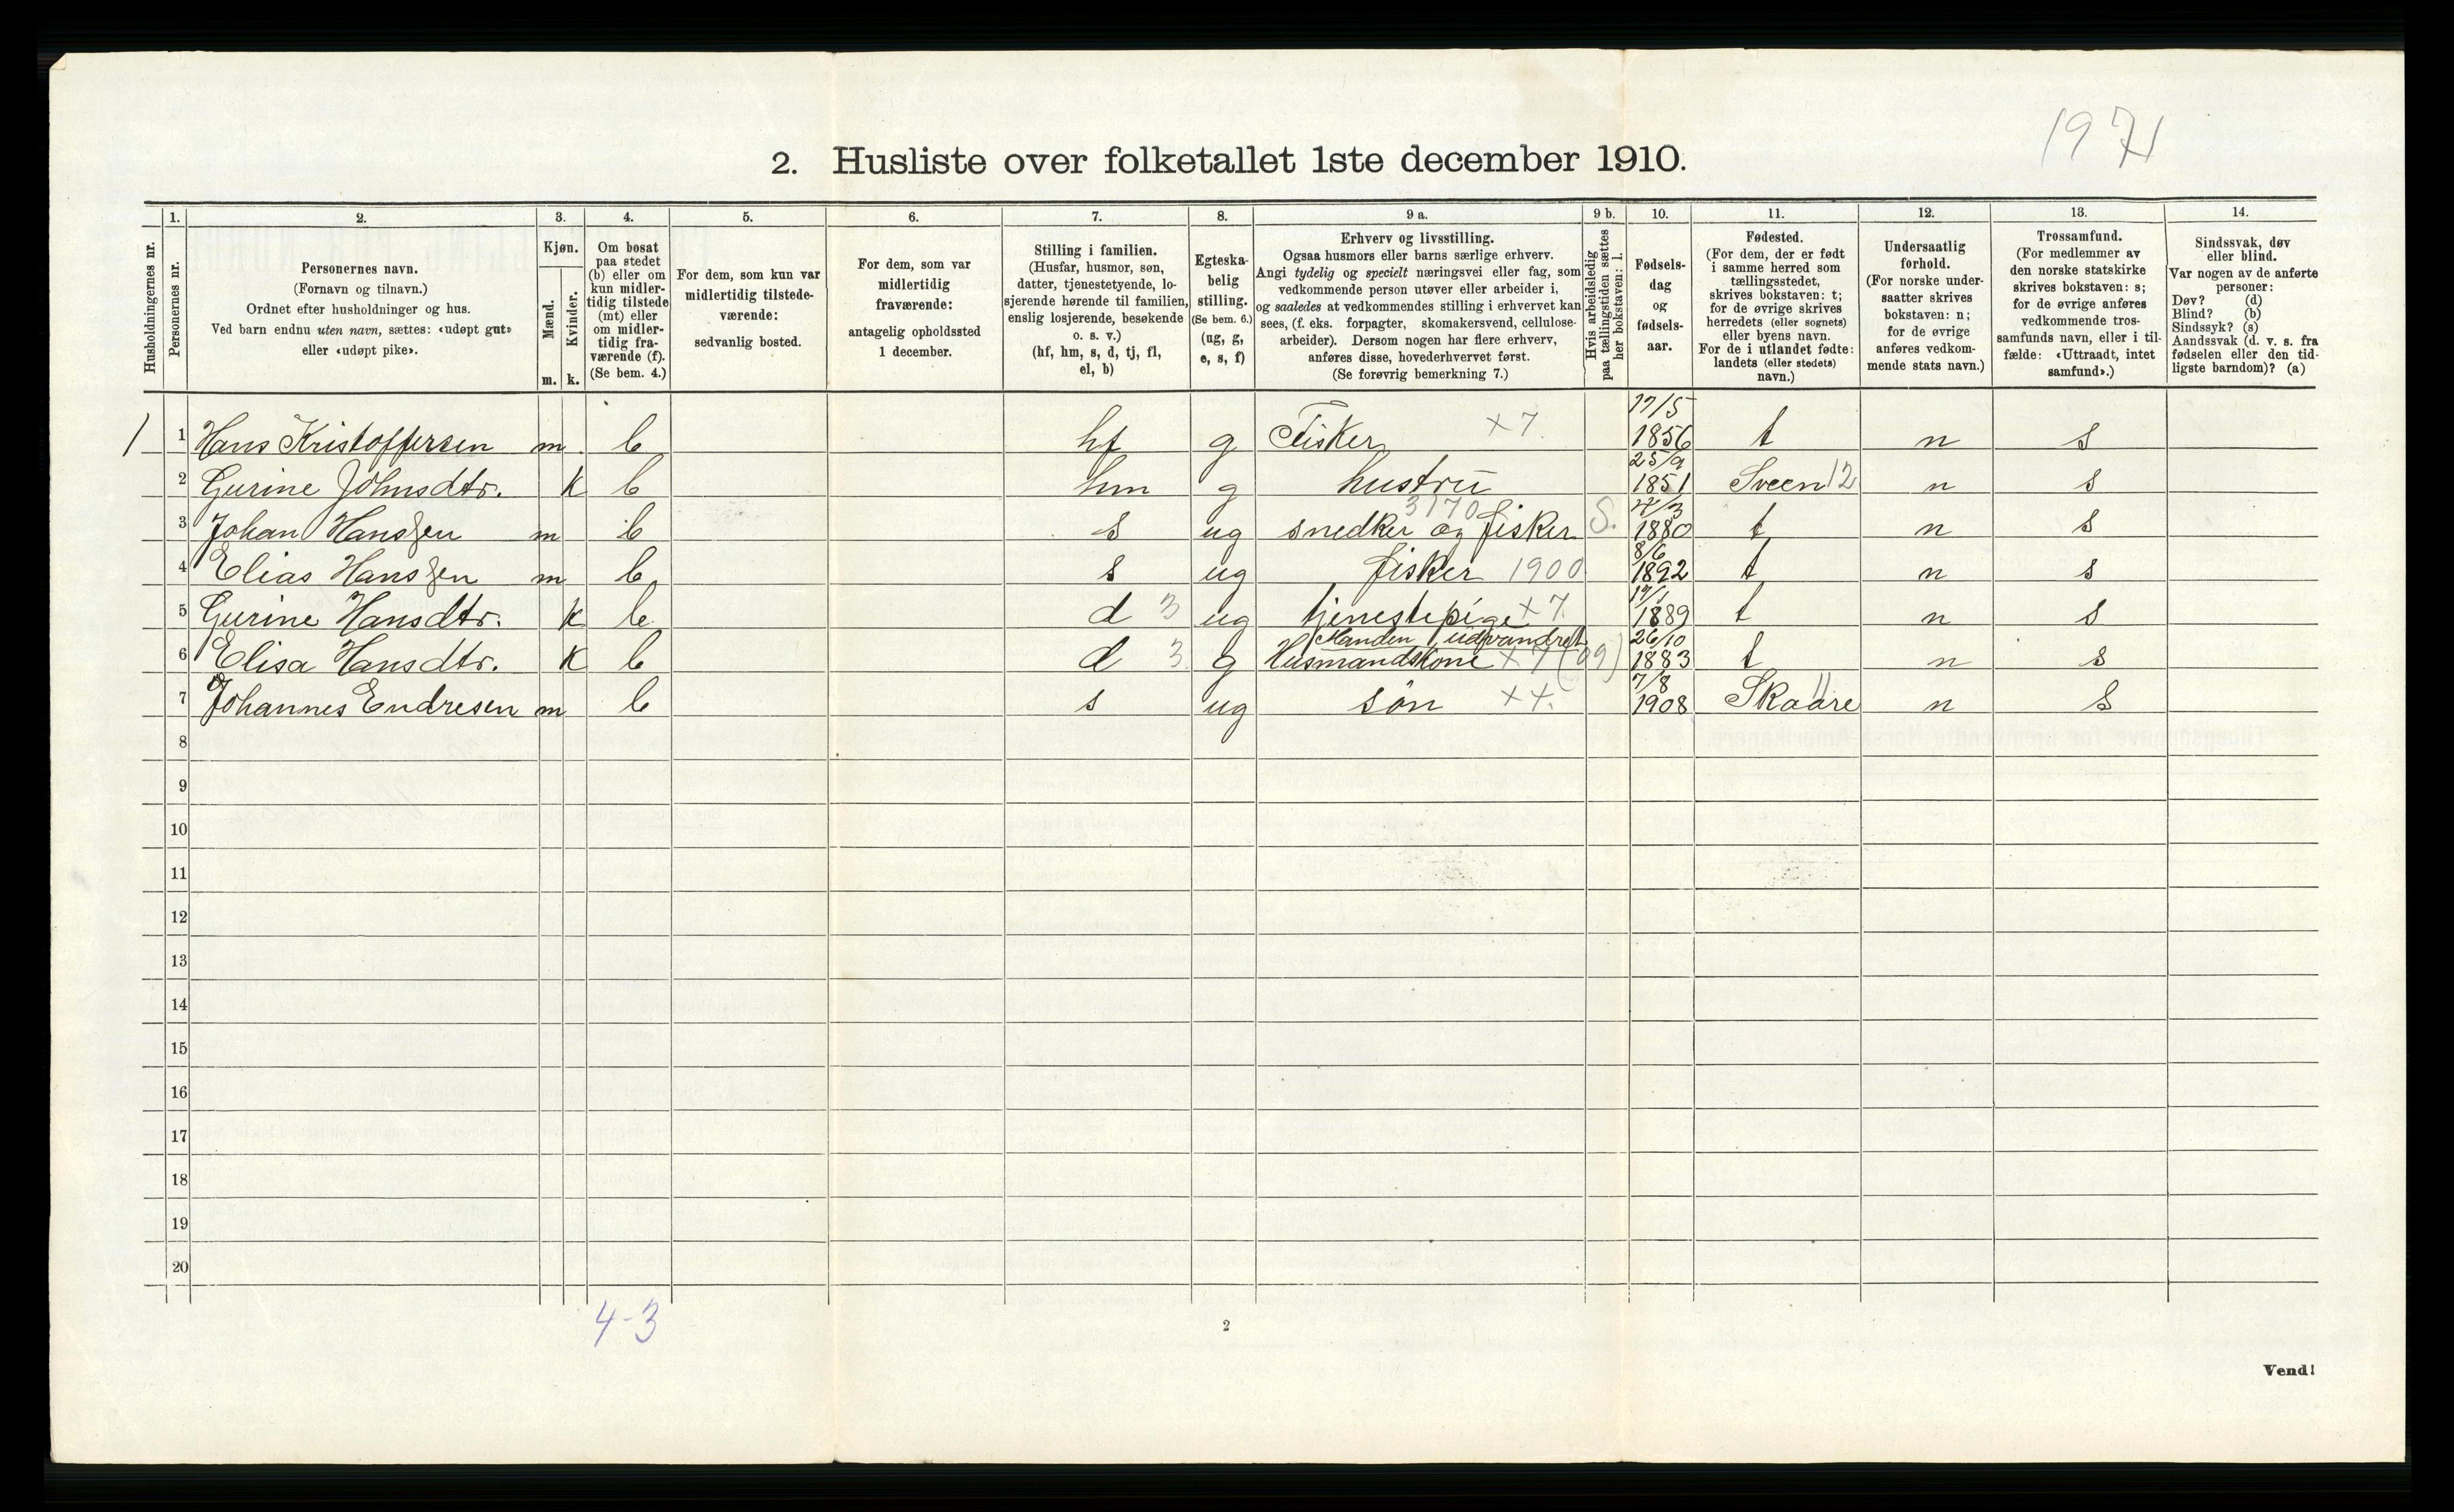 1971
2. Husliste over folketallet 1ste december 1910.
Husholdningernes nr.
1. Personernes nr.
2. Personernes navn.
(Fornavn og tilnavn.)
Ordnet efter husholdninger og hus.
Ved barn endnu uten navn, sættes: «udøpt gut»
eller «udøpt pike».
3. Kjøn.
Mænd. m.
Kvinder. k.
4. Om bosat
paa stedet
(b) eller om
kun midler-
tidig tilstede
(mt) eller
om midler-
tidig fra-
værende (f).
(Se bem. 4.)
5. For dem, som kun var
midlertidig tilstede-
værende:
sedvanlig bosted.
6. For dem, som var
midlertidig
fraværende:
antagelig opholdssted
1 december.
7. Stilling i familien.
(Husfar, husmor, søn,
datter, tjenestetyende, lo-
sjerende hørende til familien,
enslig losjerende, besøkende
o. s. v.)
(hf, hm, s, d, tj, fl,
el, b)
8. Egteska-
belig
stilling.
(Se bem. 6.)
(ug, g,
e, s, f)
9 a. Erhverv og livsstilling.
Ogsaa husmors eller barns særlige erhverv.
Angi tydelig og specielt næringsvei eller fag, som
vedkommende person utøver eller arbeider i,
og saaledes at vedkommendes stilling i erhvervet kan
sees, (f. eks. forpagter, skomakersvend, cellulose-
arbeider). Dersom nogen har flere erhverv,
anføres disse, hovederhvervet først.
(Se forøvrig bemerkning 7.)
9 b. Hvis arbeidsledig
paa tællingstiden sættes
her bokstaven: l.
10. Fødsels-
dag
og
fødsels-
aar.
11. Fødested.
(For dem, der er født
i samme herred som
tællingsstedet,
skrives bokstaven: t;
for de øvrige skrives
herredets (eller sognets)
eller byens navn.
For de i utlandet fødte:
landets (eller stedets)
navn.)
12. Undersaatlig
forhold.
(For norske under-
saatter skrives
bokstaven: n;
for de øvrige
anføres vedkom-
mende stats navn.)
13. Trossamfund.
(For medlemmer av
den norske statskirke
skrives bokstaven: s;
for de øvrige anføres
vedkommende tros-
samfunds navn, eller i til-
fælde: «Uttraadt, intet
samfund».)
14. Sindssvak, døv
eller blind.
Var nogen av de anførte
personer:
Døv? (d)
Blind? (b)
Sindssyk? (s)
Aandssvak (d. v. s. fra
fødselen eller den tid-
ligste barndom)? (a)
1 1 Hans Kristoffersen m b hf g Fisker x 7 17/5 1856 t n s
2 Gurine Johnsdtr. k b hm g hustru 25/9 1851 Sveen 12 n s
3 Johan Hanssen m b s ug snedker og fisker 3170 S. 1880 t n s
4 Elias Hanssen m b s ug fisker 1900 8/6 1892 t n s
5 Gurine Hansdtr. k b d 3 ug tjenestepige x 7. 1889 t n s
6 Elisa Hansdtr. k b d 3 g Manden udvandret Husmandskone x 7 (09) 26/10 1883 t n s
7 Johannes Endresen m b s ug søn x 4. 7/8 1908 Skaare 11 n s
8
9
10
11
12
13
14
15
16
17
18
19
20
4-3
2
Vend!